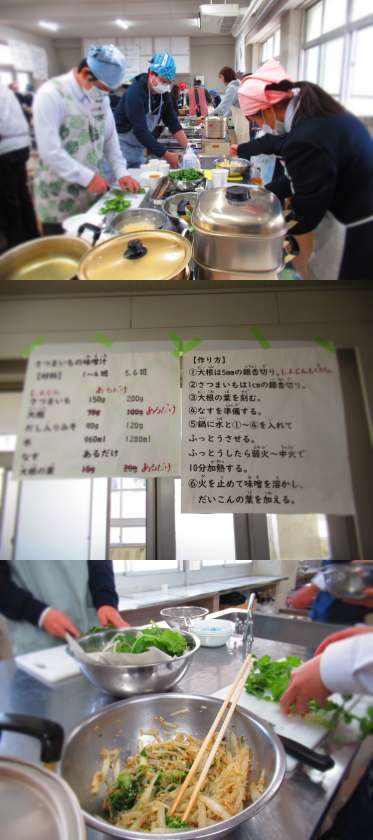 さつまいもの味噌汁
【材料】 1~4班 5,6班
にんじん あるだけ
さつまいも 150g 200g
大根 75g 100g あるだけ
だし入りみそ 90g 120g
水 960ml 1280ml
なす あるだけ
大根の葉 15g 20g あるだけ
【作り方】
①大根は5mmの銀杏切り。にんじんもいちょう。
②さつまいもは1cmの銀杏切り。
③大根の葉を刻む。
④なすを準備する。
⑤鍋に水と①~④を入れて
ふっとうさせる。
ふっとうしたら弱火~中火で
10分加熱する。
⑥火を止めて味噌を溶かし、
だいこんの葉を加える。